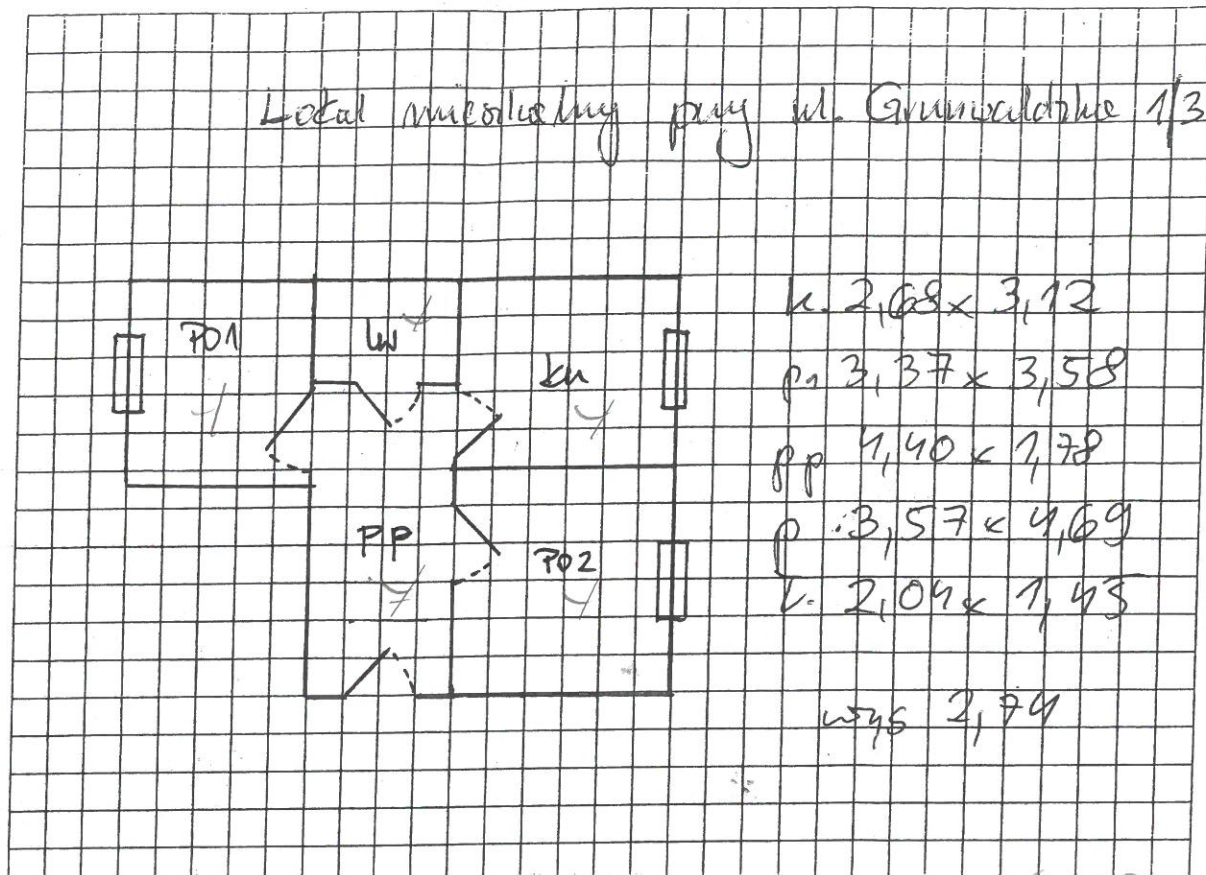 Lokal mieszkalny przy ul. Grunwaldzka 1/3
PO1
łaz
kn
PP
PO2
k. 2,68 x 3,12
p1 3,37 x 3,58
pp 4,40 x 1,78
p 3,57 x 4,69
ł. 2,04 x 1,43
wys 2,74